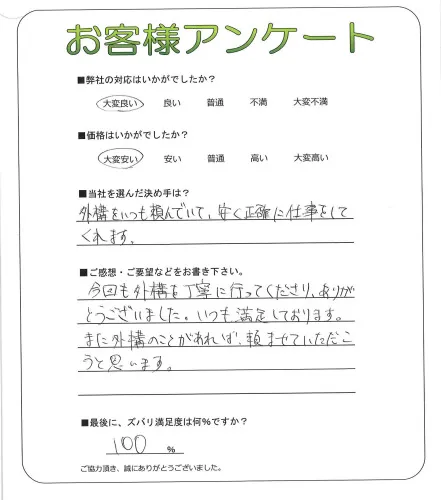 お客様アンケート
■弊社の対応はいかがでしたか?
大変良い 良い 普通 不満 大変不満
■価格はいかがでしたか?
大変安い 安い 普通 高い 大変高い
■当社を選んだ決め手は?
外構をいつも頼んでいて、安く正確に仕事をして
くれます。
■ご感想・ご要望などをお書き下さい。
今回も外構を丁寧に行ってくださり、ありが
とうございました。いつも満足しております。
また外構のことがあれば、頼ませていただこ
うと思います。
■最後に、ズバリ満足度は何%ですか?
100 %
ご協力頂き、誠にありがとうございました。